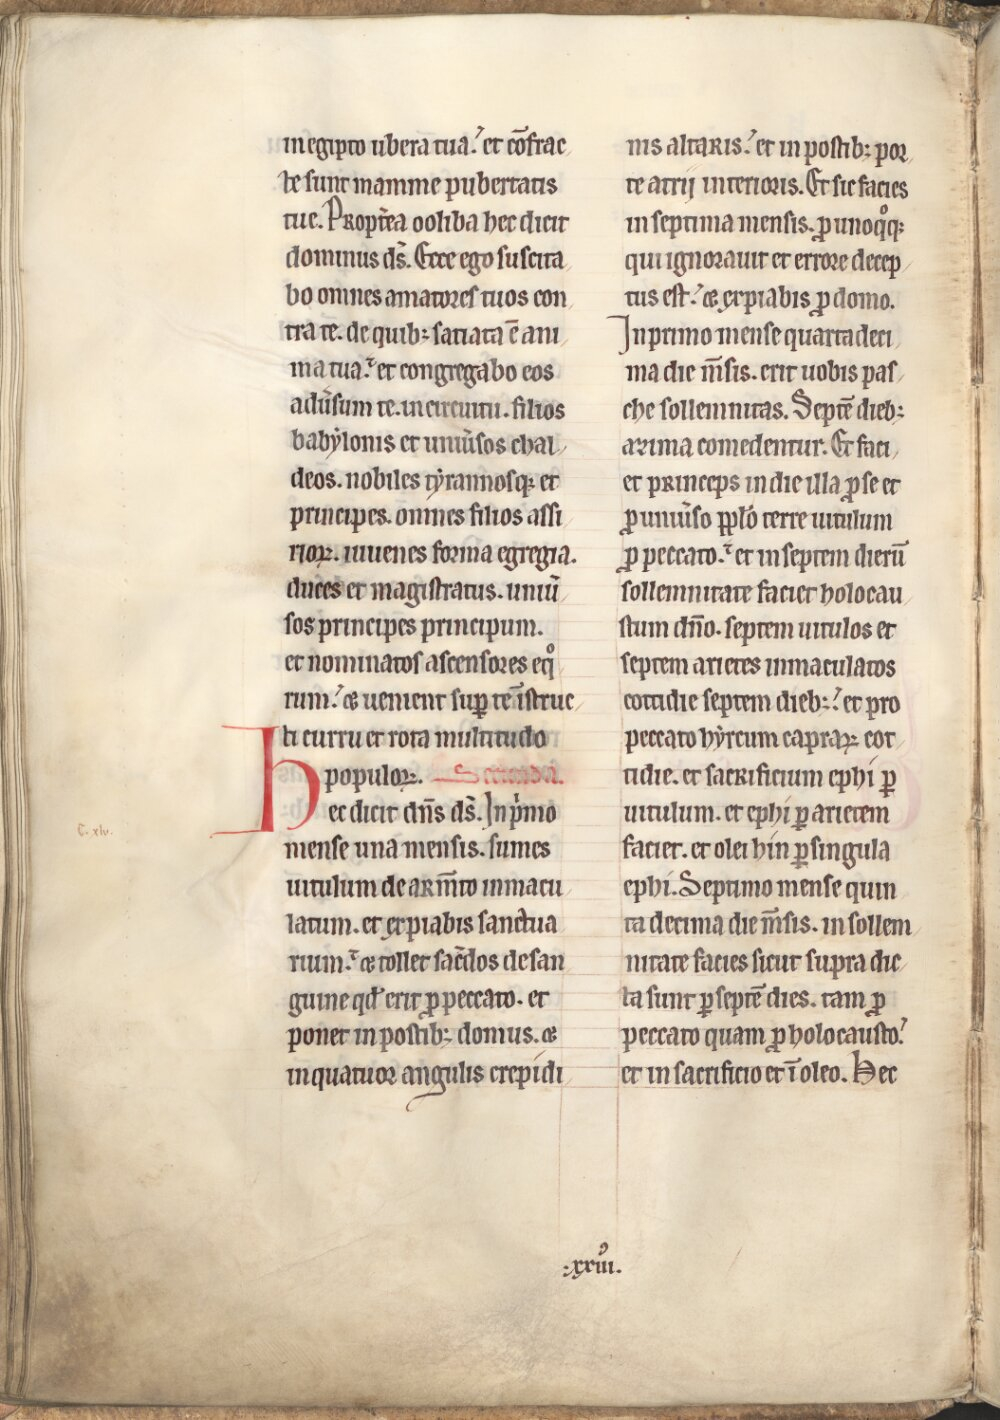 in egipto ubera tua. et cōfrac
te sunt mamme pubertatis
tue. Propt̄ea ooliba hec dicit
dominus ds̄. Ecce ego suscita
bo omnes amatores tuos con
tra te. de quib; satiata ē ani
ma tua. et congregabo eos
adūsum te. in circuitu. filios
babẏlonis et uniūsos chal
deos. nobiles tẏrannosq; et
principes. omnes filios assi
rioꝝ. iuuenes forma egregia.
duces et magistratus. uniū
sos principes principum.
et nominatos ascensores eqͦ
rum. ⁊ uenient suꝑ te īstruc
ti curru et rota multitudo
populoꝝ. Secunda.
Hec dicit dn̄s ds̄. In p̍mo
mense una mensis. sumes
uitulum de arm̄to inmacu
latum. et expiabis sanctua
rium. ⁊ tollet sac̄dos de san
guine qd̄ erit ꝓ peccato. et
ponet in postib; domus. ⁊
in quatuor angulis crepidi
C. xlv.
nis altaris. et in postib; por
te atrij interioris. Et sic facies
in septima mensis. ꝓ unoqͦq;
qui ignorauit et errore decep
tus est. ⁊ expiabis ꝓ domo.
In primo mense quarta deci
ma die m̄sis. erit uobis pas
che sollemnitas. Septē dieb;
azima comedentur. Et faci
et princeps in die illa ꝓ se et
ꝓ uniūso pp̄lo terre uitulum
ꝓ peccato. et in septem dierū
sollemnitate faciet holocau
stum dn̄o. septem uitulos et
septem arietes inmaculatos
cottidie septem dieb;. et pro
peccato hẏrcum capraꝝ cot
tidie. et sacrificium ephi ꝑ
uitulum. et ephi ꝑ arietem
faciet. et olei hin ꝑ singula
ephi. Septimo mense quin
ta decima die m̄sis. in sollem
nitate facies sicut supra dic
ta sunt ꝑ septē dies. tam ꝓ
peccato quam ꝓ holocausto.
et in sacrificio et ī oleo. Hec